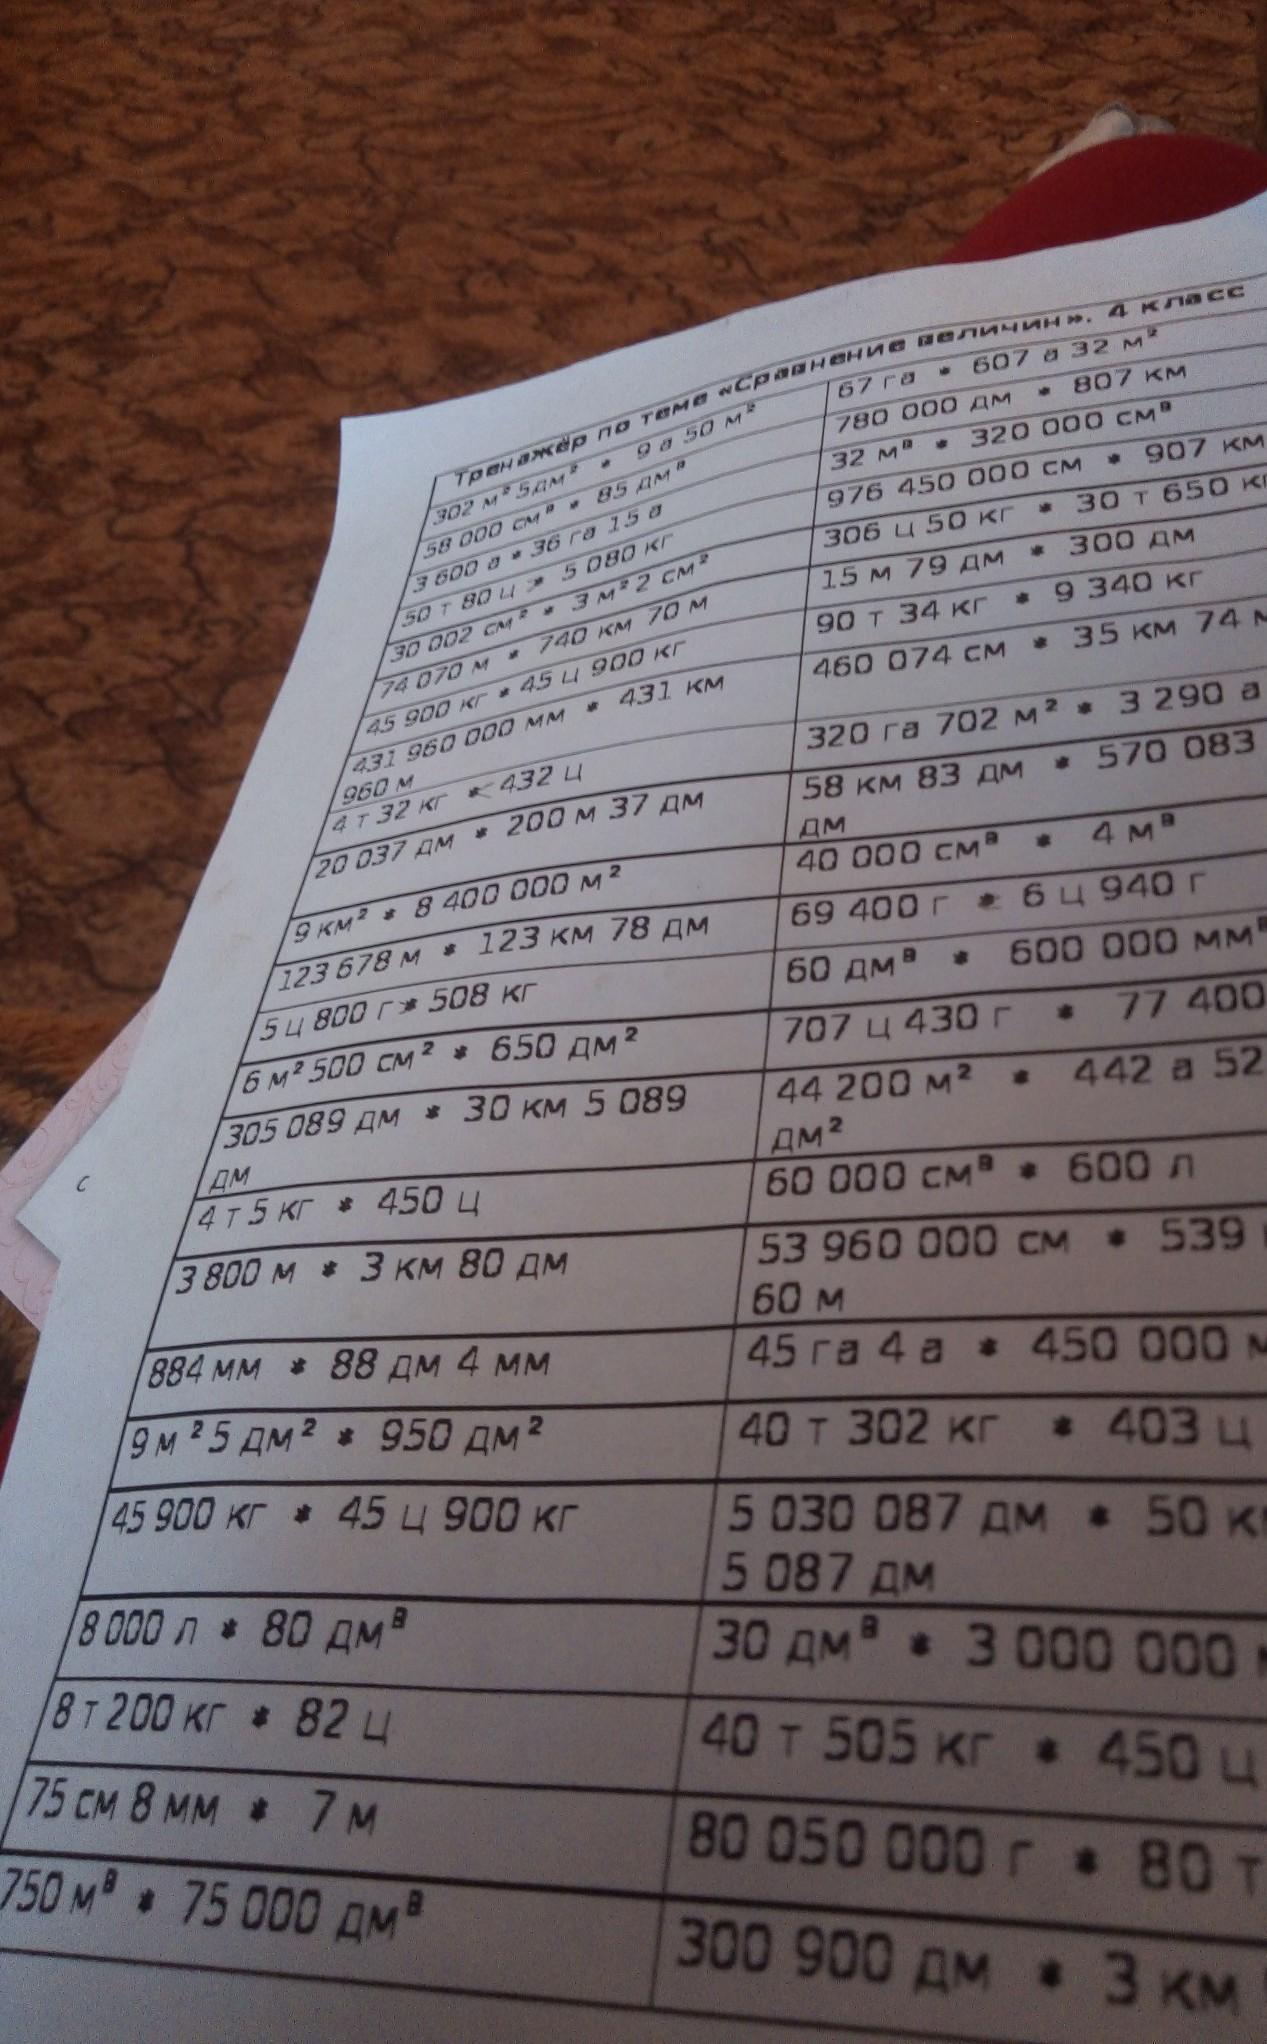 Тренажёр по теме «Сравнение величин». 4 класс
302 м² 5дм² * 9 а 50 м²
67 га * 607 а 32 м²
58 000 см³ * 85 дм³
780 000 дм * 807 км
3 600 а * 36 га 15 а
32 м³ * 320 000 см³
50 т 80 ц > 5 080 кг
976 450 000 см * 907 км
30 002 см² * 3 м² 2 см²
306 ц 50 кг * 30 т 650 кг
74 070 м * 740 км 70 м
15 м 79 дм * 300 дм
45 900 кг * 45 ц 900 кг
90 т 34 кг * 9 340 кг
431 960 000 мм * 431 км
960 м
460 074 см * 35 км 74 м
4 т 32 кг < 432 ц
320 га 702 м² * 3 290 а
20 037 дм * 200 м 37 дм
58 км 83 дм * 570 083
дм
9 км² * 8 400 000 м²
40 000 см³ * 4 м³
123 678 м * 123 км 78 дм
69 400 г * 6 ц 940 г
5 ц 800 г * 508 кг
60 дм³ * 600 000 мм³
6 м² 500 см² * 650 дм²
707 ц 430 г * 77 400
305 089 дм * 30 км 5 089
дм
44 200 м² * 442 а 52
дм²
4 т 5 кг * 450 ц
60 000 см³ * 600 л
3 800 м * 3 км 80 дм
53 960 000 см * 539
60 м
884 мм * 88 дм 4 мм
45 га 4 а * 450 000
9 м² 5 дм² * 950 дм²
40 т 302 кг * 403 ц
45 900 кг * 45 ц 900 кг
5 030 087 дм * 50 км
5 087 дм
8 000 л * 80 дм³
30 дм³ * 3 000 000
8 т 200 кг * 82 ц
40 т 505 кг * 450 ц
75 см 8 мм * 7 м
80 050 000 г * 80 т
750 м³ * 75 000 дм³
300 900 дм * 3 км
с